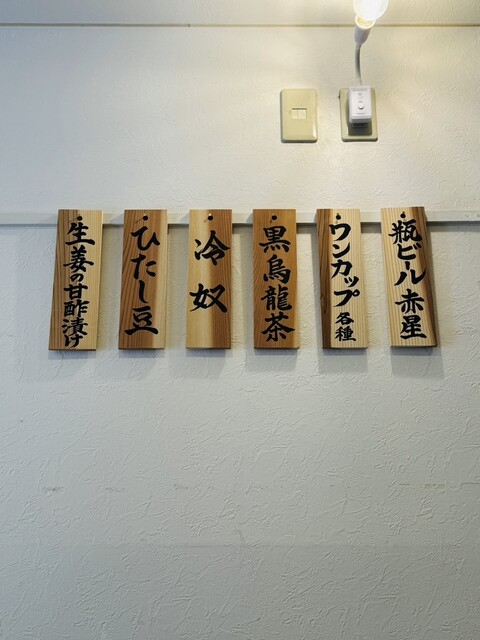 瓶ビール 赤星
ワンカップ 各種
黒烏龍茶
冷奴
ひたし豆
生姜の甘酢漬け